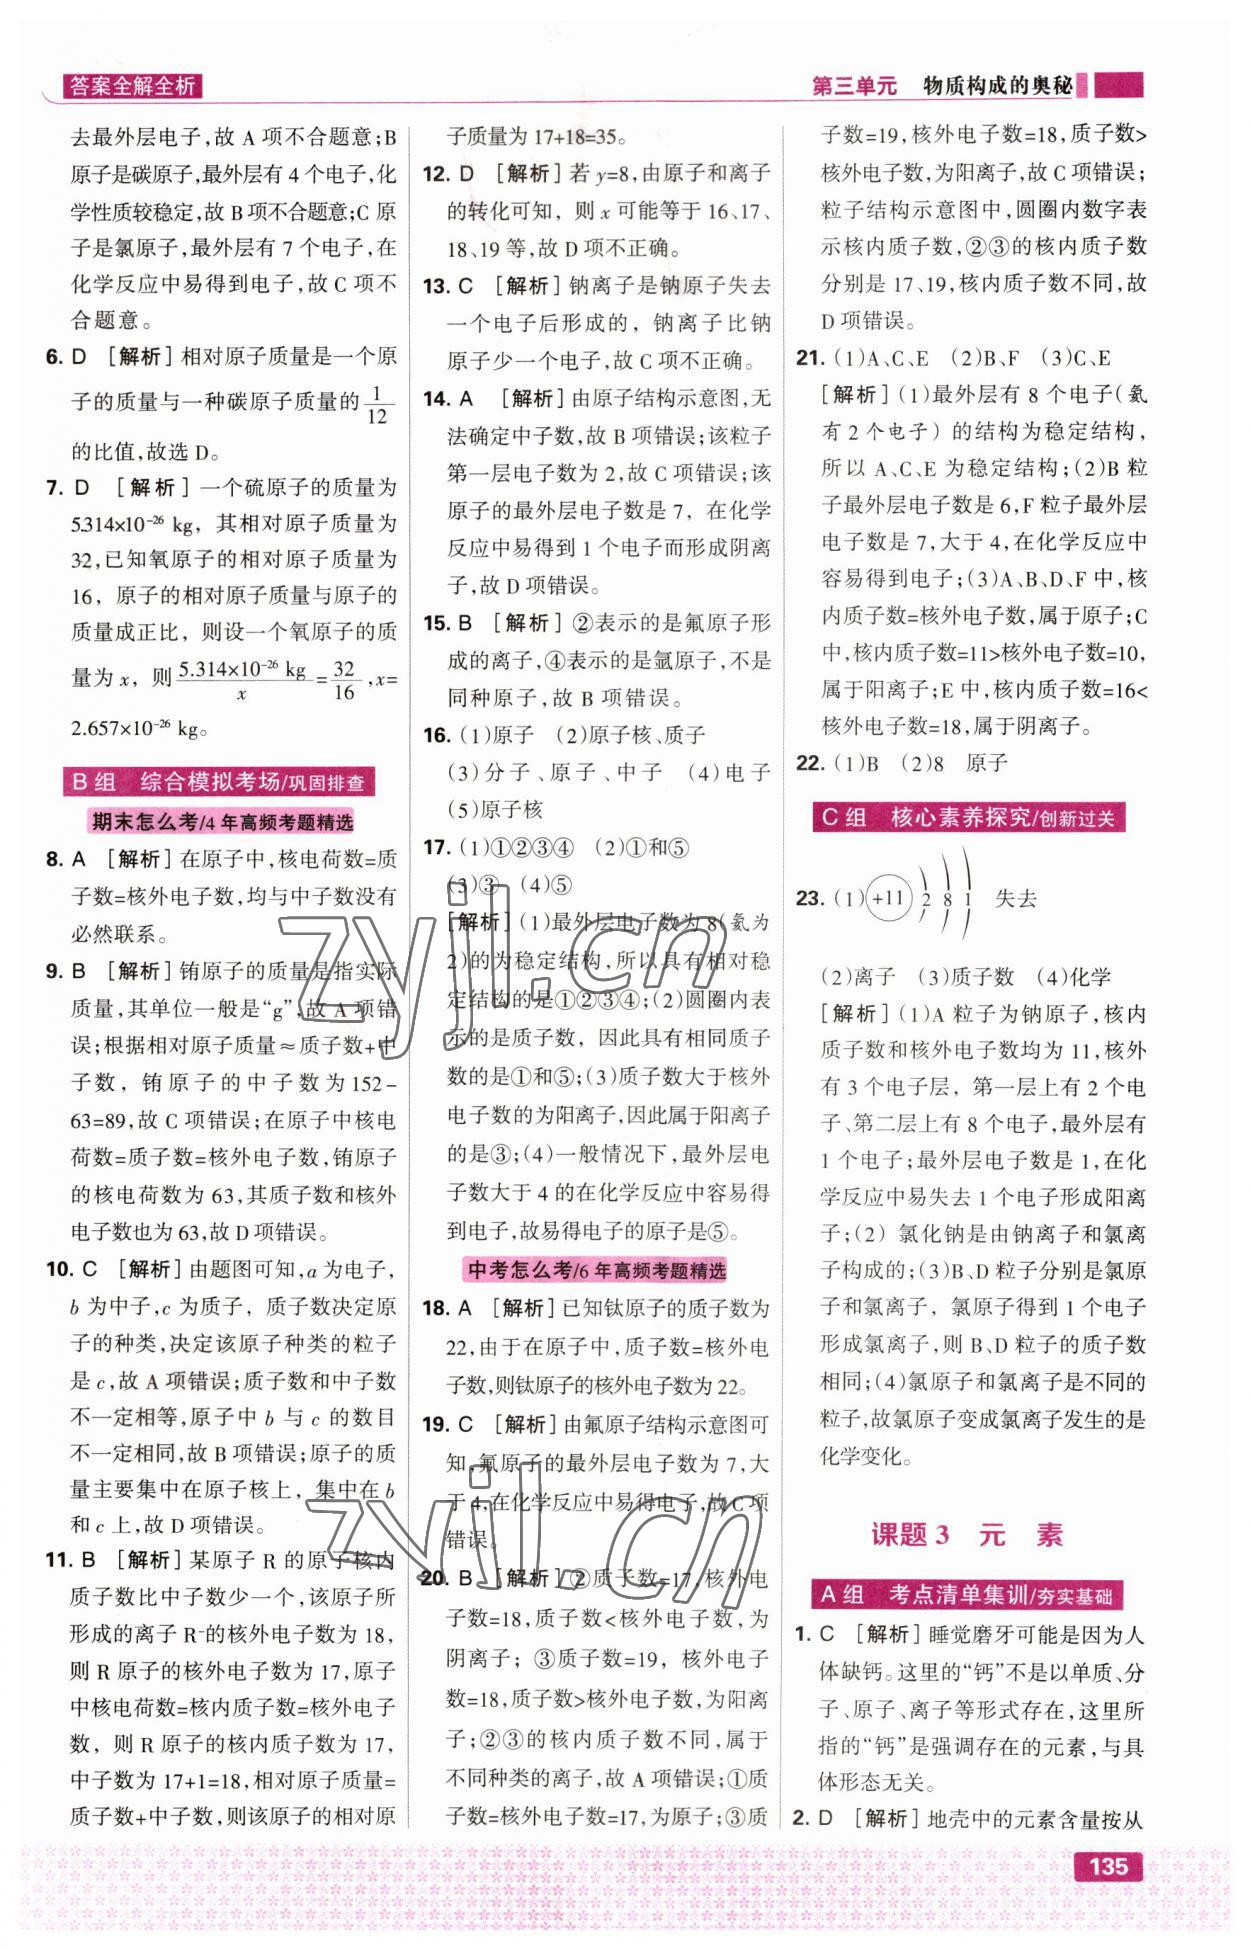 答案全解全析
第三单元 物质构成的奥秘
去最外层电子,故 A 项不合题意;B
原子是碳原子,最外层有 4 个电子,化
学性质较稳定,故 B 项不合题意;C 原
子是氯原子,最外层有 7 个电子,在
化学反应中易得到电子,故 C 项不
合题意。
6. D [解析]相对原子质量是一个原
子的质量与一种碳原子质量的 1/12
的比值,故选 D。
7. D [解析]一个硫原子的质量为
5.314×10⁻²⁶ kg, 其相对原子质量为
32,已知氧原子的相对原子质量为
16, 原子的相对原子质量与原子的
质量成正比, 则设一个氧原子的质
量为 x, 则 5.314×10⁻²⁶ kg/x = 32/16 ,x=
2.657×10⁻²⁶ kg。
B 组 综合模拟考场/巩固排查
期末怎么考/4 年高频考题精选
8. A [解析]在原子中,核电荷数=质
子数=核外电子数,均与中子数没有
必然联系。
9. B [解析]铕原子的质量是指实际
质量,其单位一般是“g”,故 A 项错
误;根据相对原子质量≈质子数+中
子数, 铕原子的中子数为 152-
63=89,故 C 项错误;在原子中核电
荷数=质子数=核外电子数,铕原子
的核电荷数为 63,其质子数和核外
电子数也为 63,故 D 项错误。
10. C [解析]由题图可知,a 为电子,
b 为中子,c 为质子, 质子数决定原
子的种类,决定该原子种类的粒子
是 c,故 A 项错误;质子数和中子数
不一定相等,原子中 b 与 c 的数目
不一定相同,故 B 项错误;原子的质
量主要集中在原子核上, 集中在 b
和 c 上,故 D 项错误。
11. B [解析]某原子 R 的原子核内
质子数比中子数少一个,该原子所
形成的离子 R⁻的核外电子数为 18,
则 R 原子的核外电子数为 17,原子
中核电荷数=核内质子数=核外电子
数, 则 R 原子的核内质子数为 17,
中子数为 17+1=18,相对原子质量=
质子数+中子数,则该原子的相对原
子质量为 17+18=35。
12. D [解析]若 y=8,由原子和离子
的转化可知, 则 x 可能等于 16、17、
18、19 等,故 D 项不正确。
13. C [解析]钠离子是钠原子失去
一个电子后形成的, 钠离子比钠
原子少一个电子,故 C 项不正确。
14. A [解析]由原子结构示意图,无
法确定中子数,故 B 项错误;该粒子
第一层电子数为 2,故 C 项错误;该
原子的最外层电子数是 7, 在化学
反应中易得到 1 个电子而形成阴离
子,故 D 项错误。
15. B [解析]②表示的是氟原子形
成的离子,④表示的是氩原子,不是
同种原子,故 B 项错误。
16. (1)原子 (2)原子核、质子
(3)分子、原子、中子 (4)电子
(5)原子核
17. (1)①②③④ (2)①和⑤
(3)③ (4)⑤
[解析](1)最外层电子数为 8(氦为
2)的为稳定结构,所以具有相对稳
定结构的是①②③④;(2)圆圈内表
示的是质子数, 因此具有相同质子
数的是①和⑤;(3)质子数大于核外
电子数的为阳离子,因此属于阳离子
的是③;(4)一般情况下,最外层电
子数大于 4 的在化学反应中容易得
到电子,故易得电子的原子是⑤。
中考怎么考/6 年高频考题精选
18. A [解析]已知钛原子的质子数为
22,由于在原子中,质子数=核外电
子数,则钛原子的核外电子数为 22。
19. C [解析]由氟原子结构示意图可
知,氟原子的最外层电子数为 7,大
于 4,在化学反应中易得电子,故 C 项
错误。
20. B [解析]②质子数=17,核外电
子数=18,质子数<核外电子数, 为
阴离子; ③质子数=19, 核外电子
数=18,质子数>核外电子数,为阳离
子;②③的核内质子数不同,属于
不同种类的离子,故 A 项错误;①质
子数=核外电子数=17,为原子;③质
子数=19,核外电子数=18,质子数>
核外电子数,为阳离子,故 C 项错误;
粒子结构示意图中,圆圈内数字表
示核内质子数,②③的核内质子数
分别是 17、19,核内质子数不同,故
D 项错误。
21. (1)A、C、E (2)B、F (3)C、E
[解析](1)最外层有 8 个电子(氦
有 2 个电子) 的结构为稳定结构,
所以 A、C、E 为稳定结构;(2)B 粒
子最外层电子数是 6,F 粒子最外层
电子数是 7,大于 4,在化学反应中
容易得到电子;(3)A、B、D、F 中,核
内质子数=核外电子数,属于原子;C
中,核内质子数=11>核外电子数=10,
属于阳离子;E 中,核内质子数=16<
核外电子数=18,属于阴离子。
22. (1)B (2)8 原子
C 组 核心素养探究/创新过关
23. (1) +11 2 8 1 失去
(2)离子 (3)质子数 (4)化学
[解析](1)A 粒子为钠原子,核内
质子数和核外电子数均为 11,核外
有 3 个电子层, 第一层上有 2 个电
子、第二层上有 8 个电子,最外层有
1 个电子;最外层电子数是 1,在化
学反应中易失去 1 个电子形成阳离
子;(2) 氯化钠是由钠离子和氯离
子构成的;(3)B、D 粒子分别是氯原
子和氯离子, 氯原子得到 1 个电子
形成氯离子,则 B、D 粒子的质子数
相同;(4)氯原子和氯离子是不同的
粒子,故氯原子变成氯离子发生的是
化学变化。
课题 3 元 素
A 组 考点清单集训/夯实基础
1. C [解析]睡觉磨牙可能是因为人
体缺钙。这里的“钙”不是以单质、分
子、原子、离子等形式存在,这里所
指的“钙”是强调存在的元素,与具
体形态无关。
2. D [解析]地壳中的元素含量按从
135
zyjl.cn
zyjl.cn